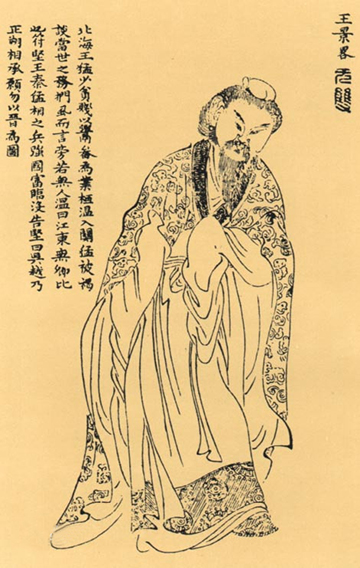 王景畧
无雙
北海王猛少貧賤以鬻畚為業桓温入關猛被褐
談當世之務捫虱而言旁若無人温曰江東無卿比
也苻堅王秦猛相之兵強國富臨沒告堅曰吳越乃
正朔相承願勿以晉為圖